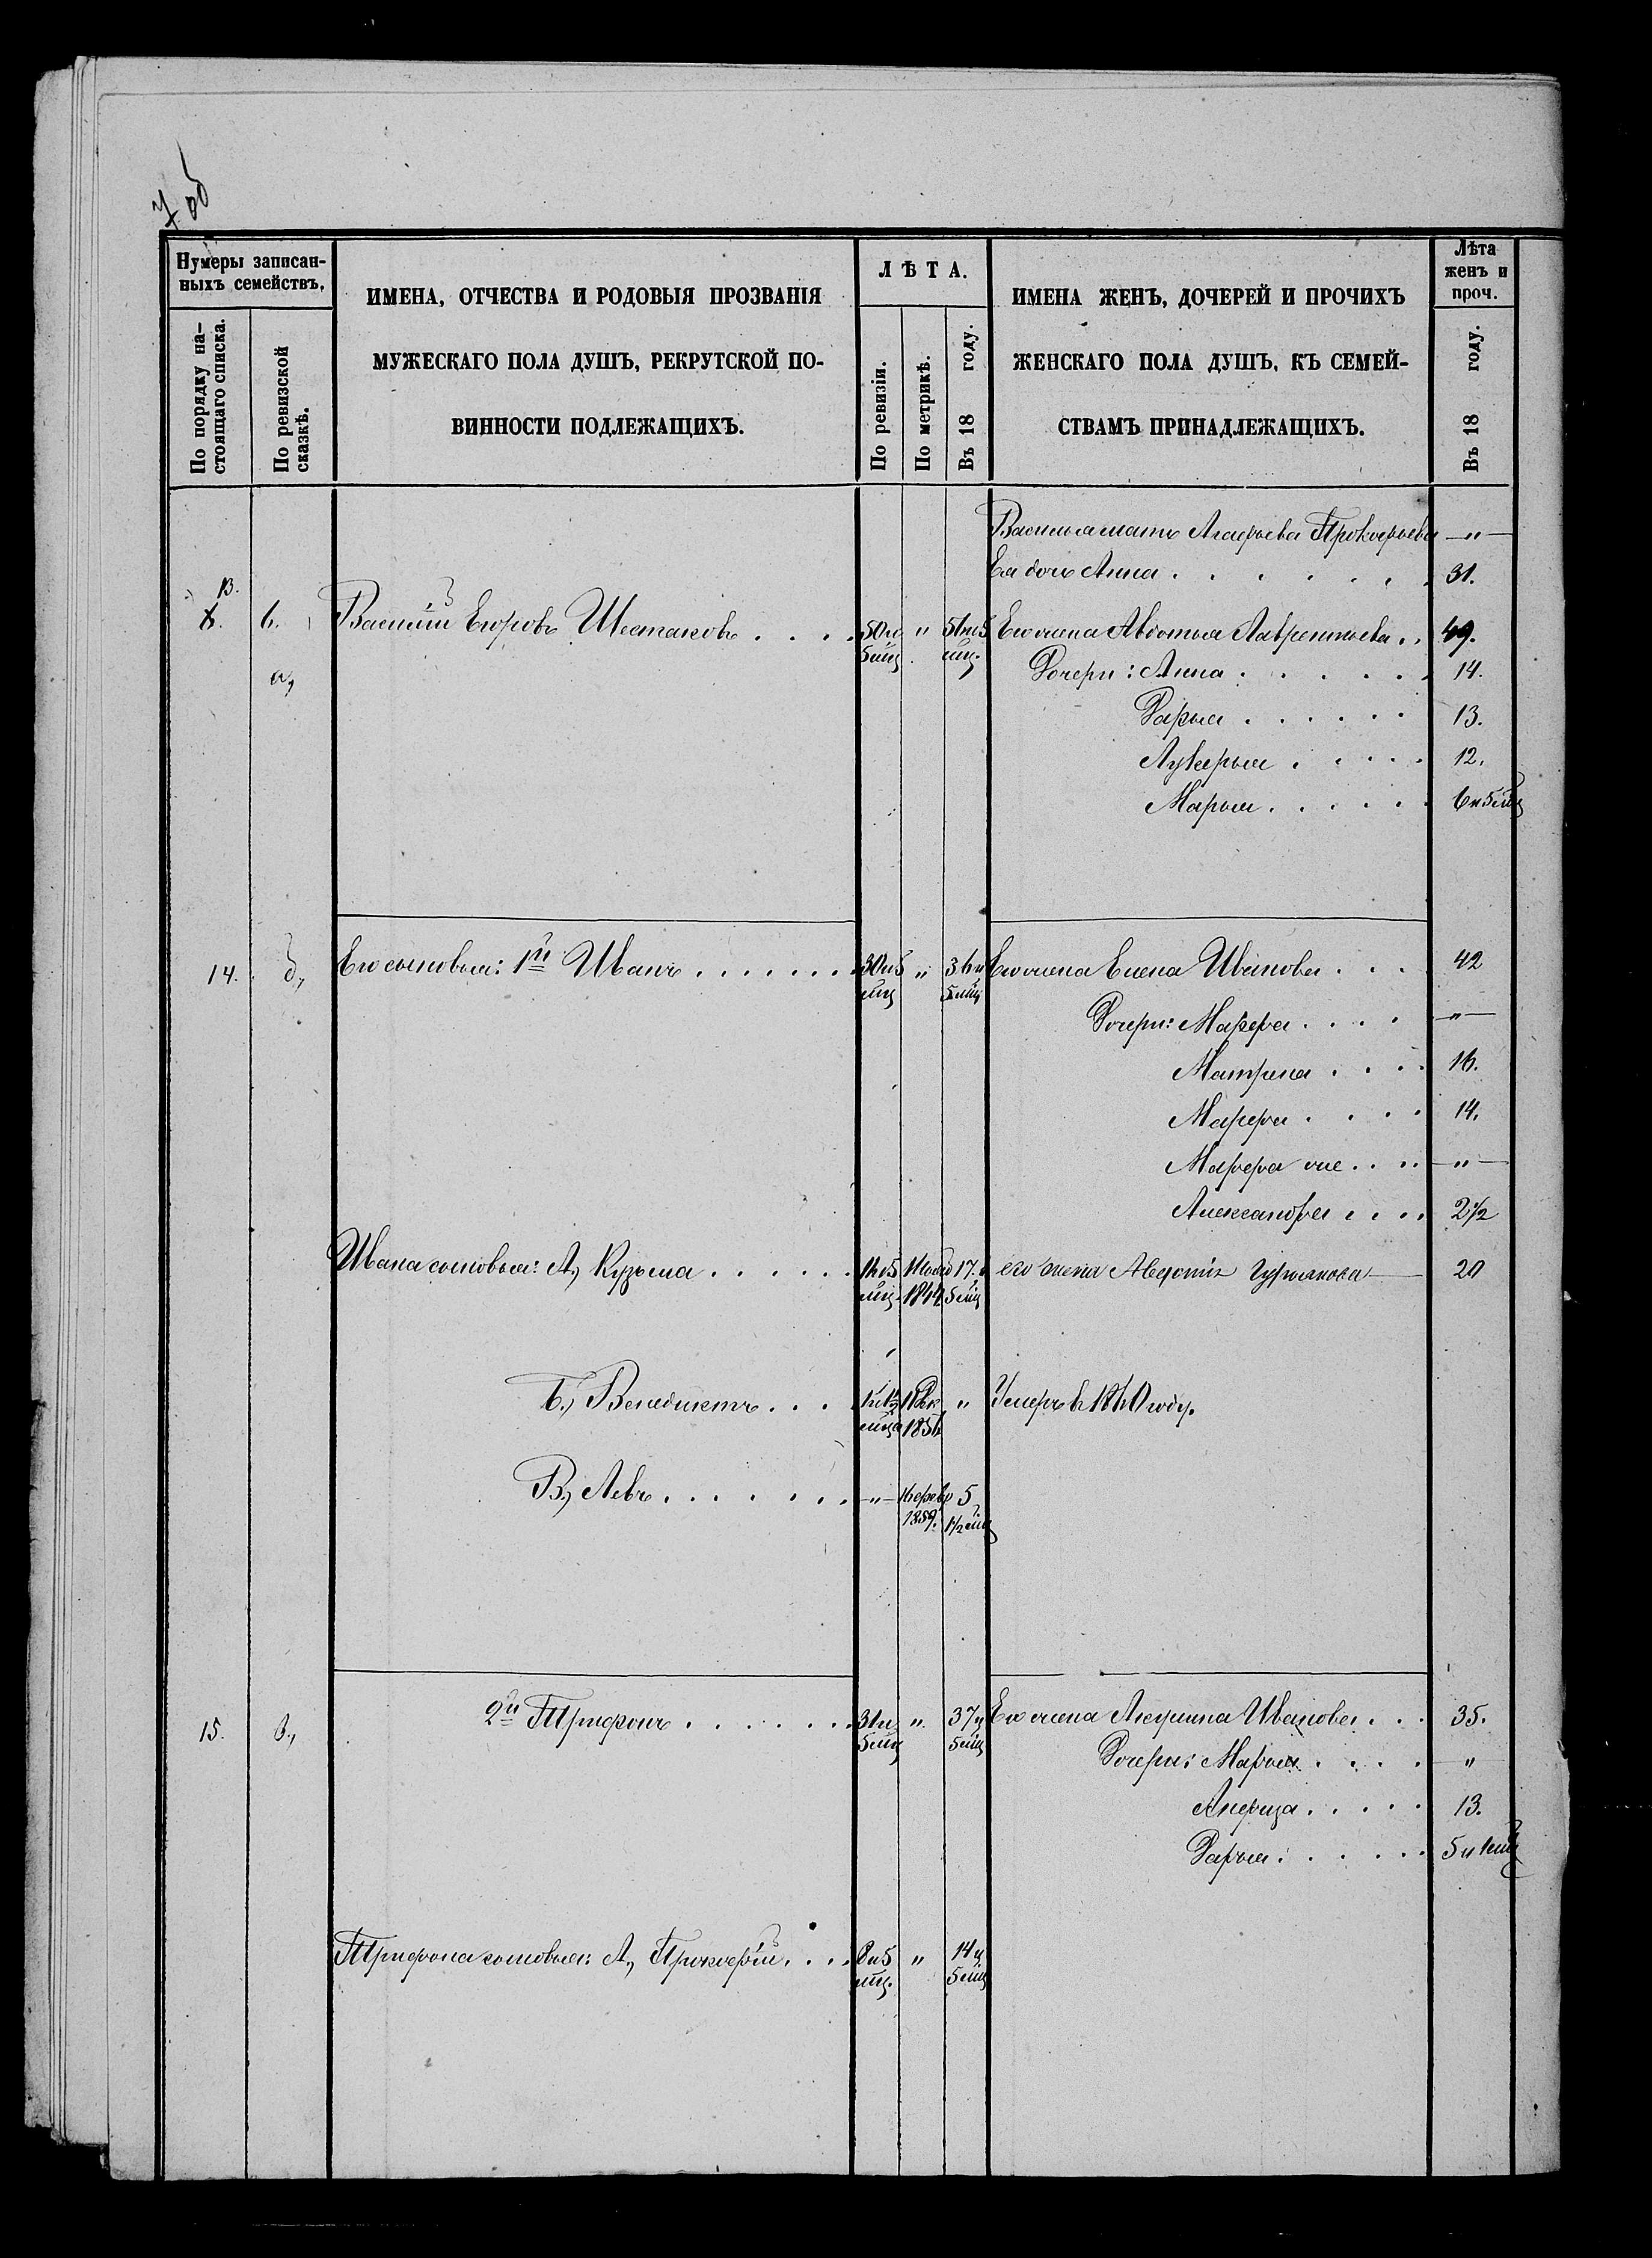 7 об
Нумеры записан-
ныхъ семействъ.
По порядку на-
стоящаго списка.
По ревизской
сказкѣ.
ИМЕНА, ОТЧЕСТВА И РОДОВЫЯ ПРОЗВАНІЯ
МУЖЕСКАГО ПОЛА ДУШЪ, РЕКРУТСКОЙ ПО-
ВИННОСТИ ПОДЛЕЖАЩИХЪ.
ЛѢТА.
По ревизіи.
По метрикѣ.
Въ 18 году.
ИМЕНА ЖЕНЪ, ДОЧЕРЕЙ И ПРОЧИХЪ
ЖЕНСКАГО ПОЛА ДУШЪ, КЪ СЕМЕЙ-
СТВАМЪ ПРИНАДЛЕЖАЩИХЪ.
Лѣта
женъ и
проч.
Въ 18 году.
Василья мать Агафья Прокофьева —"—
Ея дочь Анна . . . . . . . 31.
13. 6. Василій Егоровъ Шестаковъ . . . . 50 и " 56 и 5 Его жена Авдотья Лаврентьева . . 49.
5 мц. мц.
а, Дочери: Анна . . . . . . 14.
Дарья . . . . . . 13.
Лукерья . . . . . 12.
Марья . . . . . . 6 и 5 мц
14. б, Его сыновья: 1й Иванъ . . . . . . . 30 и 5 " 36 и Его жена Елена Иванова . . . . 42
мц 5 мц
Дочери: Марфа . . . . —"—
Матрена . . . . 16.
Марфа . . . . 14.
Марфа же . . . . —"—
Александра . . . . 2½
Ивана сыновья: А, Кузьма . . . . . . 11 и 5 17. и его жена Авдотія 20
мц. 5 мц
Б, Венедиктъ . . . . " Умеръ въ 1860 году.
1856
В, Левъ . . . . . . . —"— 16 февр 5
1859. 1½ мц
15. в, 2й Трифонъ . . . . . . . 31 и " 37 и Его жена Акулина Иванова . . . 35.
5 мц 5 мц
Дочери: Марья . . . . "
Анфиза . . . . . 13.
Дарья . . . . . 5 и 1 мц
Трифона сыновья: А, Прокофій . . . . 8 и 5 " 14 и
мц. 5 мц